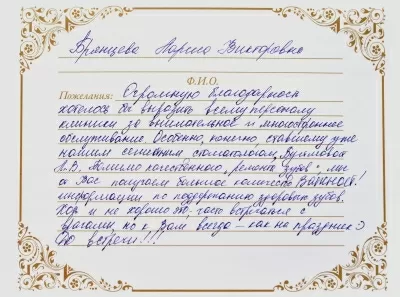 Брянцева Марина Викторовна
Ф.И.О.
Пожелания: Огромную благодарность
хотелось бы выразить всему персоналу
клиники за внимательное и многостороннее
обслуживание. Особенно, конечно, ставшему уже
нашим семейным стоматологом,
Помимо качественного, "ремонта зубов", мы
от Вас получаем большое количество ВАЖНОЙ!
информации по поддержанию здоровья зубов.
Хоть и не хорошо это, часто встречаться с
врачами, но к Вам всегда - как на праздник
До встречи!!!